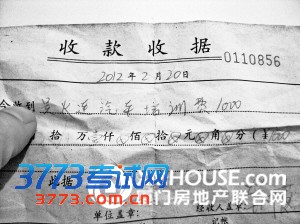 收款收据
0110856
2012年2月20日
今收到 汽车培训费1000
拾 万 仟 佰 拾 元 角 分(¥1000
3773考试网 HOUSE.COM
此据 门房地产联合网
www.3773.com.cn
单位盖章: 经收人盖章: